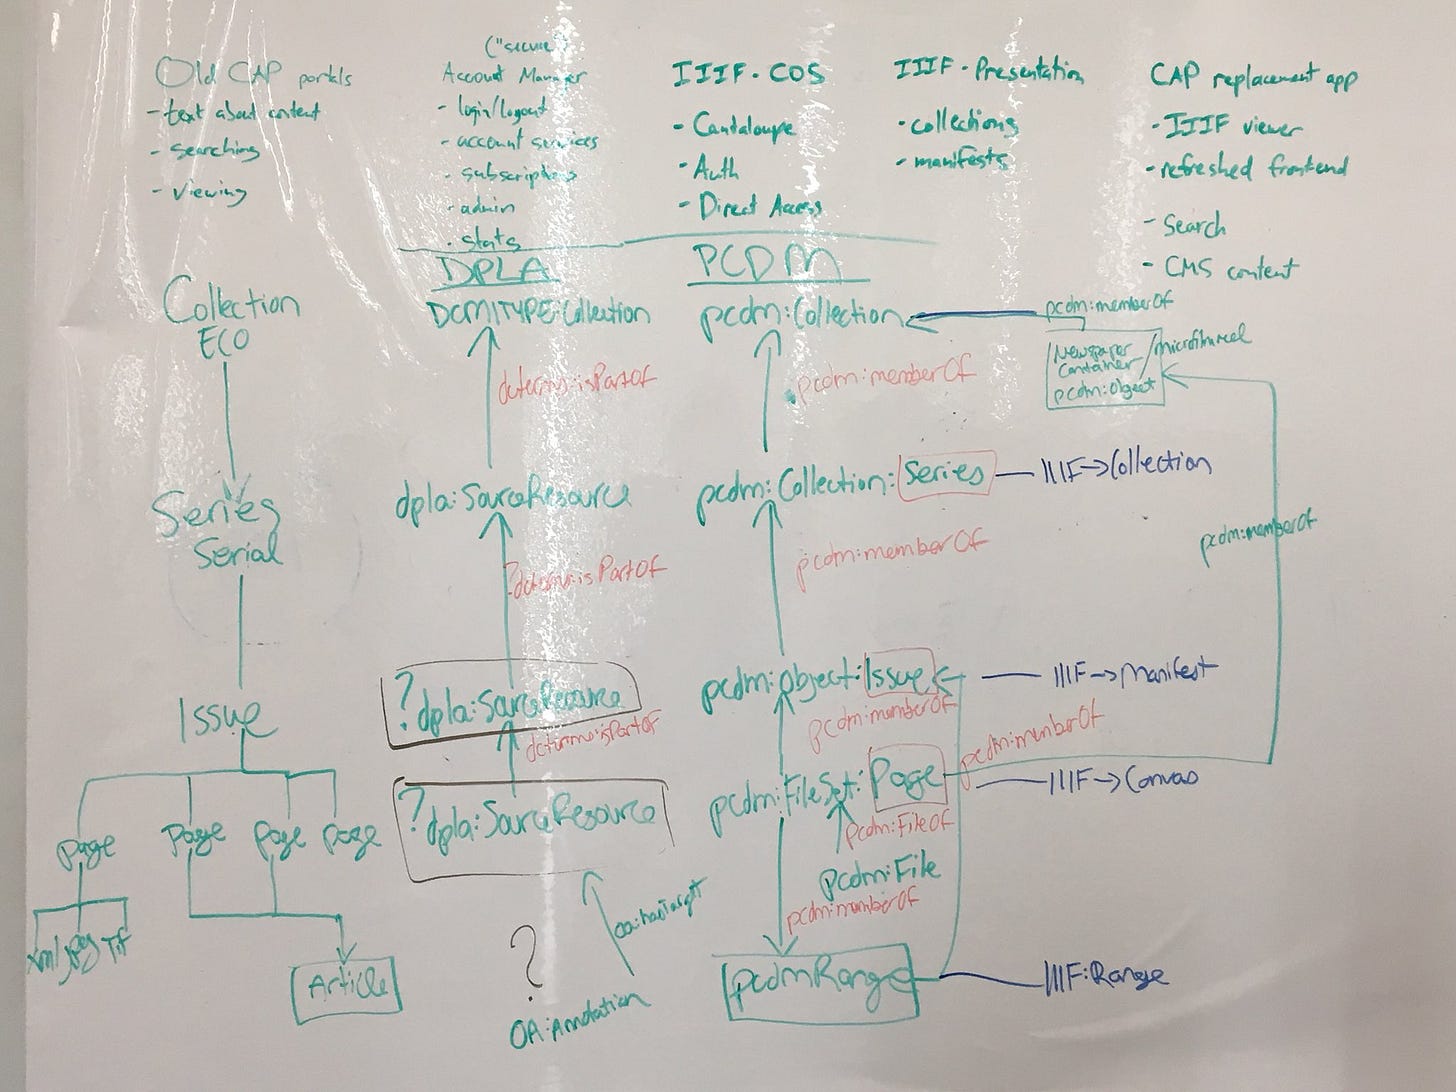 Old CAP portals
- text about content
- searching
- viewing
("secure")
Account Manager
- login/logout
- account services
- subscriptions
- admin
- stats
IIIF - COS
- Cantaloupe
- Auth
- Direct Access
IIIF - Presentation
- collections
- manifests
CAP replacement app
- IIIF viewer
- refreshed frontend
- Search
- CMS content
Collection
ECO
Series
Serial
Issue
page
page
page
page
xml
jpeg
Tif
Article
DPLA
DCMITYPE:Collection
dcterms:isPartOf
dpla:SourceResource
?dcterms:isPartOf
?dpla:SourceResource
dcterms:isPartOf
?dpla:SourceResource
oa:hasTarget
?
OA:Annotation
PCDM
pcdm:Collection
pcdm:memberOf
Newspaper/microfilmreel
Container
pcdm:object
pcdm:memberOf
pcdm:Collection:Series
IIIF→Collection
pcdm:memberOf
pcdm:memberOf
pcdm:object:Issue
IIIF→Manifest
pcdm:memberOf
pcdm:memberOf
pcdm:FileSet:Page
IIIF→Canvas
pcdm:FileOf
pcdm:File
pcdm:memberOf
pcdmRange
IIIF:Range